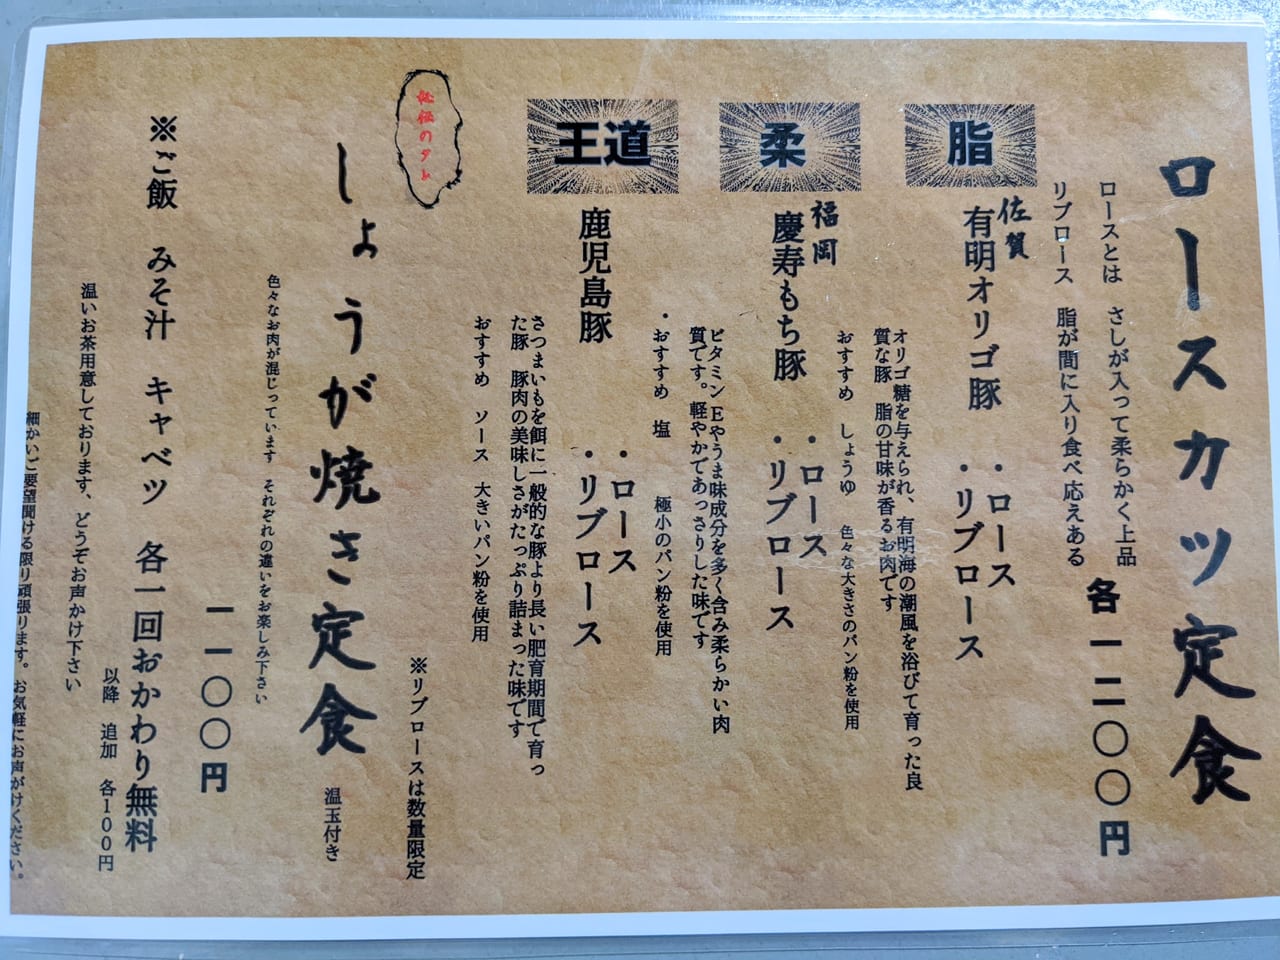 ロースカツ定食
ロースとは　さしが入って柔らかく上品
リブロース　脂が間に入り食べ応えある
各一二〇〇円
脂
佐賀
有明オリゴ豚
・ロース
・リブロース
オリゴ糖を与えられ、有明海の潮風を浴びて育った良
質な豚　脂の甘味が香るお肉です
おすすめ　しょうゆ　色々な大きさのパン粉を使用
柔
福岡
慶寿もち豚
・ロース
・リブロース
ビタミンEやうま味成分を多く含み柔らかい肉
質です。軽やかであっさりした味です
・おすすめ　塩　極小のパン粉を使用
王道
鹿児島豚
・ロース
・リブロース
さつまいもを餌に一般的な豚より長い肥育期間で育っ
た豚　豚肉の美味しさがたっぷり詰まった味です
おすすめ　ソース　大きいパン粉を使用
※リブロースは数量限定
のタレ
しょうが焼き定食
温玉付き
色々なお肉が混じっています　それぞれの違いをお楽しみ下さい
一一〇〇円
※ご飯　みそ汁　キャベツ　各一回おかわり無料
以降　追加　各100円
温いお茶用意しております、どうぞお声かけ下さい
細かいご要望聞ける限り頑張ります。お気軽にお声がけください。